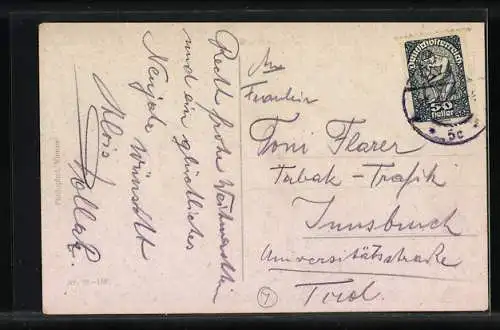 Recht frohe Weihnachten
und ein glückliches
Neujahr wünscht
Alois Pollak
An
Fräulein
Toni Flarer
Tabak-Trafik
Innsbruck
Universitätsstraße
Tirol.
Deutschösterreich
50
Heller
5c